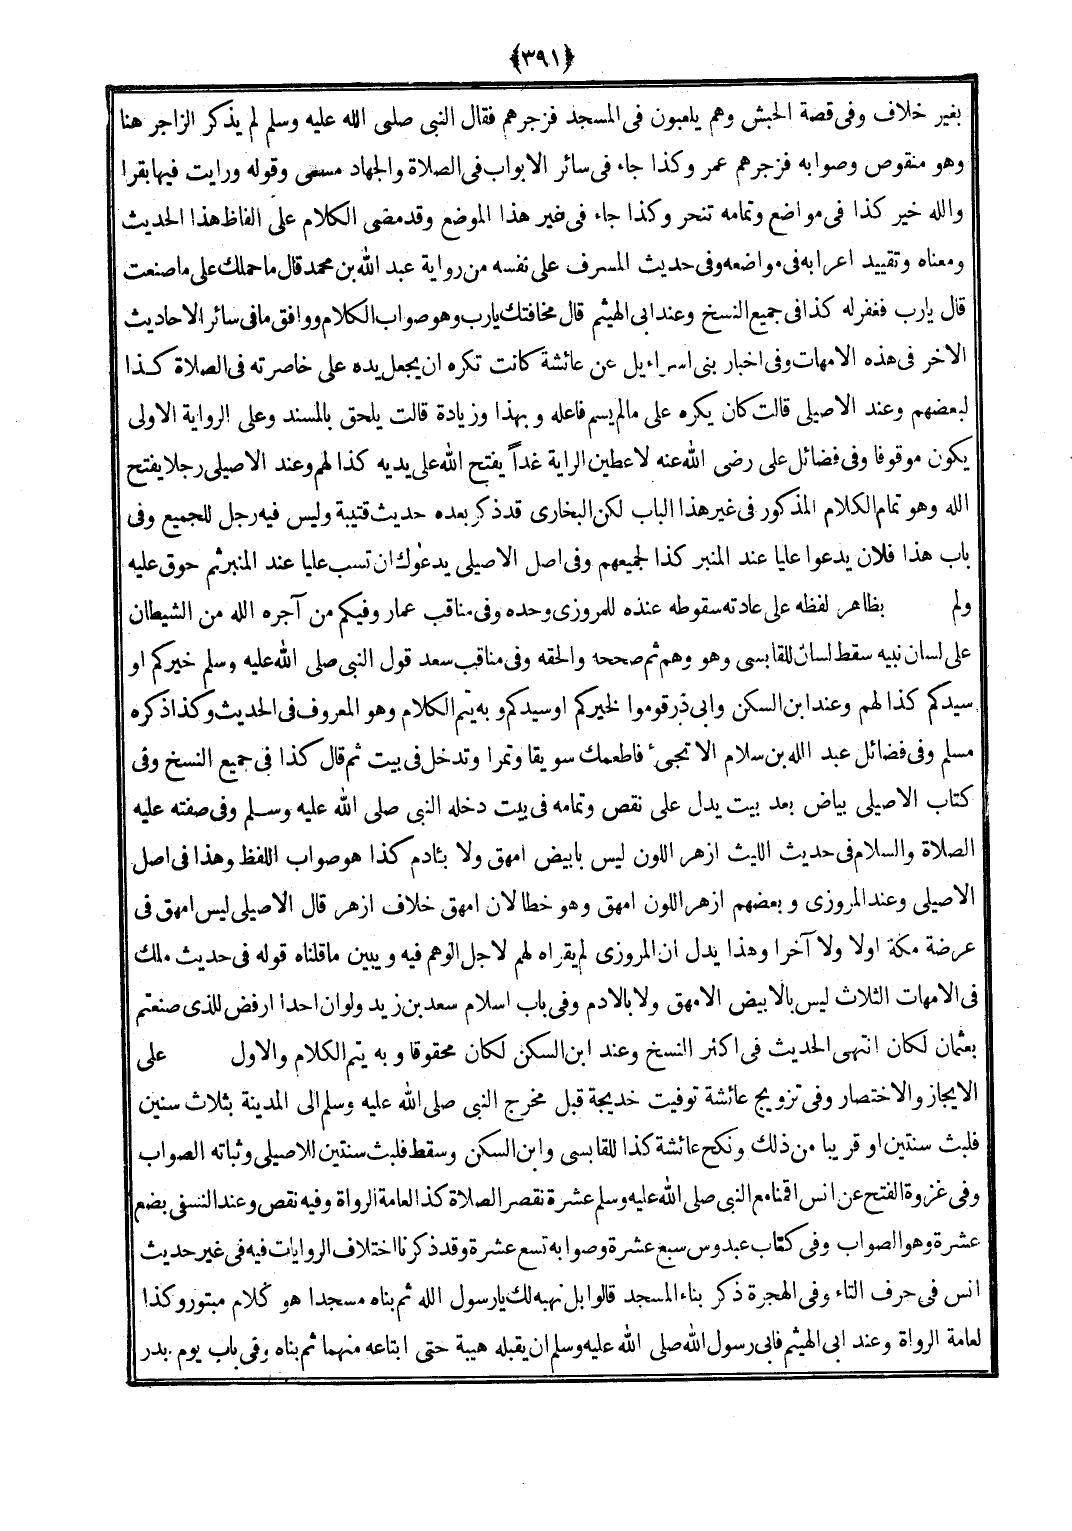 ﴿٣٩١﴾
بغير خلاف وفى قصة الحبش وهم يلعبون فى المسجد فزجرهم فقال النبى صلى الله عليه وسلم لم يذكر الزاجر هنا
وهو منقوص وصوابه فزجرهم عمر وكذا جاء فى سائر الابواب فى الصلاة والجهاد مسمى وقوله ورايت فيها بقرا
والله خير كذا فى مواضع وتمامه تنحر وكذا جاء فى غير هذا الموضع وقد مضى الكلام على الفاظ هذا الحديث
ومعناه وتقييد اعرابه فى مواضعه وفى حديث المسرف على نفسه من رواية عبد الله بن محمد قال ما حملك على ما صنعت
قال يارب فغفر له كذا فى جميع النسخ وعند ابى الهيثم قال مخافتك يارب وهو صواب الكلام ووافق ما فى سائر الاحاديث
الاخر فى هذه الامهات وفى اخبار بنى اسراءيل عن عائشة كانت تكره ان يجعل يده على خاصرته فى الصلاة كذا
لبعضهم وعند الاصيلى قالت كان يكره على مالم يسم فاعله وبهذا وزيادة قالت يلحق بالمسند وعلى الرواية الاولى
يكون موقوفا وفى فضائل على رضى الله عنه لاعطين الراية غداً يفتح الله على يديه كذا لهم وعند الاصيلى رجلا يفتح
الله وهو تمام الكلام المذكور فى غير هذا الباب لكن البخارى قد ذكر بعده حديث قتيبة وليس فيه رجل للجميع وفى
باب هذا فلان يدعوا عليا عند المنبر كذا لجميعهم وفى اصل الاصيلى يدعوك ان تسب عليا عند المنبر ثم حوق عليه
ولم بظاهر لفظه على عادته سقوطه عنده للمروزى وحده وفى مناقب عمار وفيكم من آجره الله من الشيطان
على لسان نبيه سقط لسان للقابسى وهو وهم ثم صححه والحقه وفى مناقب سعد قول النبى صلى الله عليه وسلم خيركم او
سيدكم كذا لهم وعند ابن السكن وابى ذر قوموا لخيركم او سيدكم وبه يتم الكلام وهو المعروف فى الحديث وكذا ذكره
مسلم وفى فضائل عبد الله بن سلام الا تجىء فاطعمك سويقا وتمرا وتدخل فى بيت ثم قال كذا فى جميع النسخ وفى
كتاب الاصيلى بياض بعد بيت يدل على نقص وتمامه فى بيت دخله النبى صلى الله عليه وسلم وفى صفته عليه
الصلاة والسلام فى حديث الليث ازهر اللون ليس بابيض امهق ولا بئادم كذا هو صواب اللفظ وهذا فى اصل
الاصيلى وعند المروزى وبعضهم ازهر اللون امهق وهو خطا لان امهق خلاف ازهر قال الاصيلى ليس امهق فى
عرضة مكة اولا ولا آخرا وهذا يدل ان المروزى لم يقراه لهم لاجل الوهم فيه ويبين ما قلناه قوله فى حديث ملك
فى الامهات الثلاث ليس بالابيض الامهق ولا بالادم وفى باب اسلام سعد بن زيد ولو ان احدا ارفض للذى صنعتم
بعثمان لكان انتهى الحديث فى اكثر النسخ وعند ابن السكن لكان محقوقا وبه يتم الكلام والاول على
الايجاز والاختصار وفى تزويج عائشة توفيت خديجة قبل مخرج النبى صلى الله عليه وسلم الى المدينة بثلاث سنين
فلبث سنتين او قريبا من ذلك ونكح عائشة كذا للقابسى وابن السكن وسقط فلبث سنتين للاصيلى وثباته الصواب
وفى غزوة الفتح عن انس اقمنا مع النبى صلى الله عليه وسلم عشرة نقصر الصلاة كذا لعامة الرواة وفيه نقص وعند النسفى بضع
عشرة وهو الصواب وفى كتاب عبدوس سبع عشرة وصوابه تسع عشرة وقد ذكرنا اختلاف الروايات فيه فى غير حديث
انس فى حرف التاء وفى الهجرة ذكر بناء المسجد قالوا بل نهبه لك يا رسول الله ثم بناه مسجدا هو كلام مبتور وكذا
لعامة الرواة وعند ابى الهيثم فابى رسول الله صلى الله عليه وسلم ان يقبله هيبة حتى ابتاعه منهما ثم بناه وفى باب يوم بدر